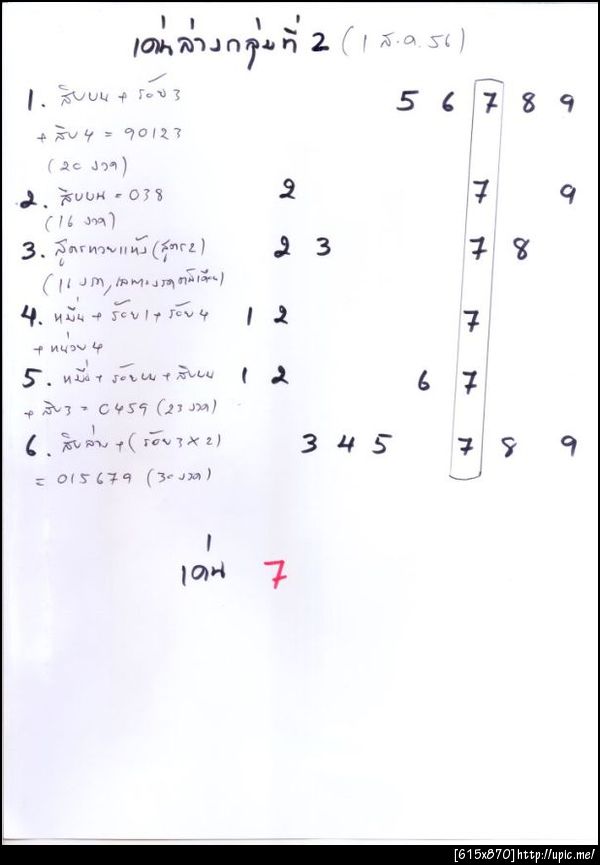 เด่นล่างกลุ่มที่ 2 (1 ส.ค. 56)
1. สิบบน + ร้อย3 5 6 7 8 9
+ สิบ4 = 90123
(20 งวด)
2. สิบบน = 038 2 7 9
(16 งวด)
3. สูตรหวยแห้ง (สูตร2) 2 3 7 8
(11 งวด,
4. หมื่น + ร้อย1 + ร้อย4 1 2 7
+ หน่วย4
5. หมื่น + ร้อยบน + สิบบน 1 2 6 7
+ สิบ3 = 0459 (23 งวด)
6. สิบล่าง + (ร้อย3 x 2) 3 4 5 7 8 9
= 015679 (30 งวด)
เด่น 7
[615x870]http://upic.me/